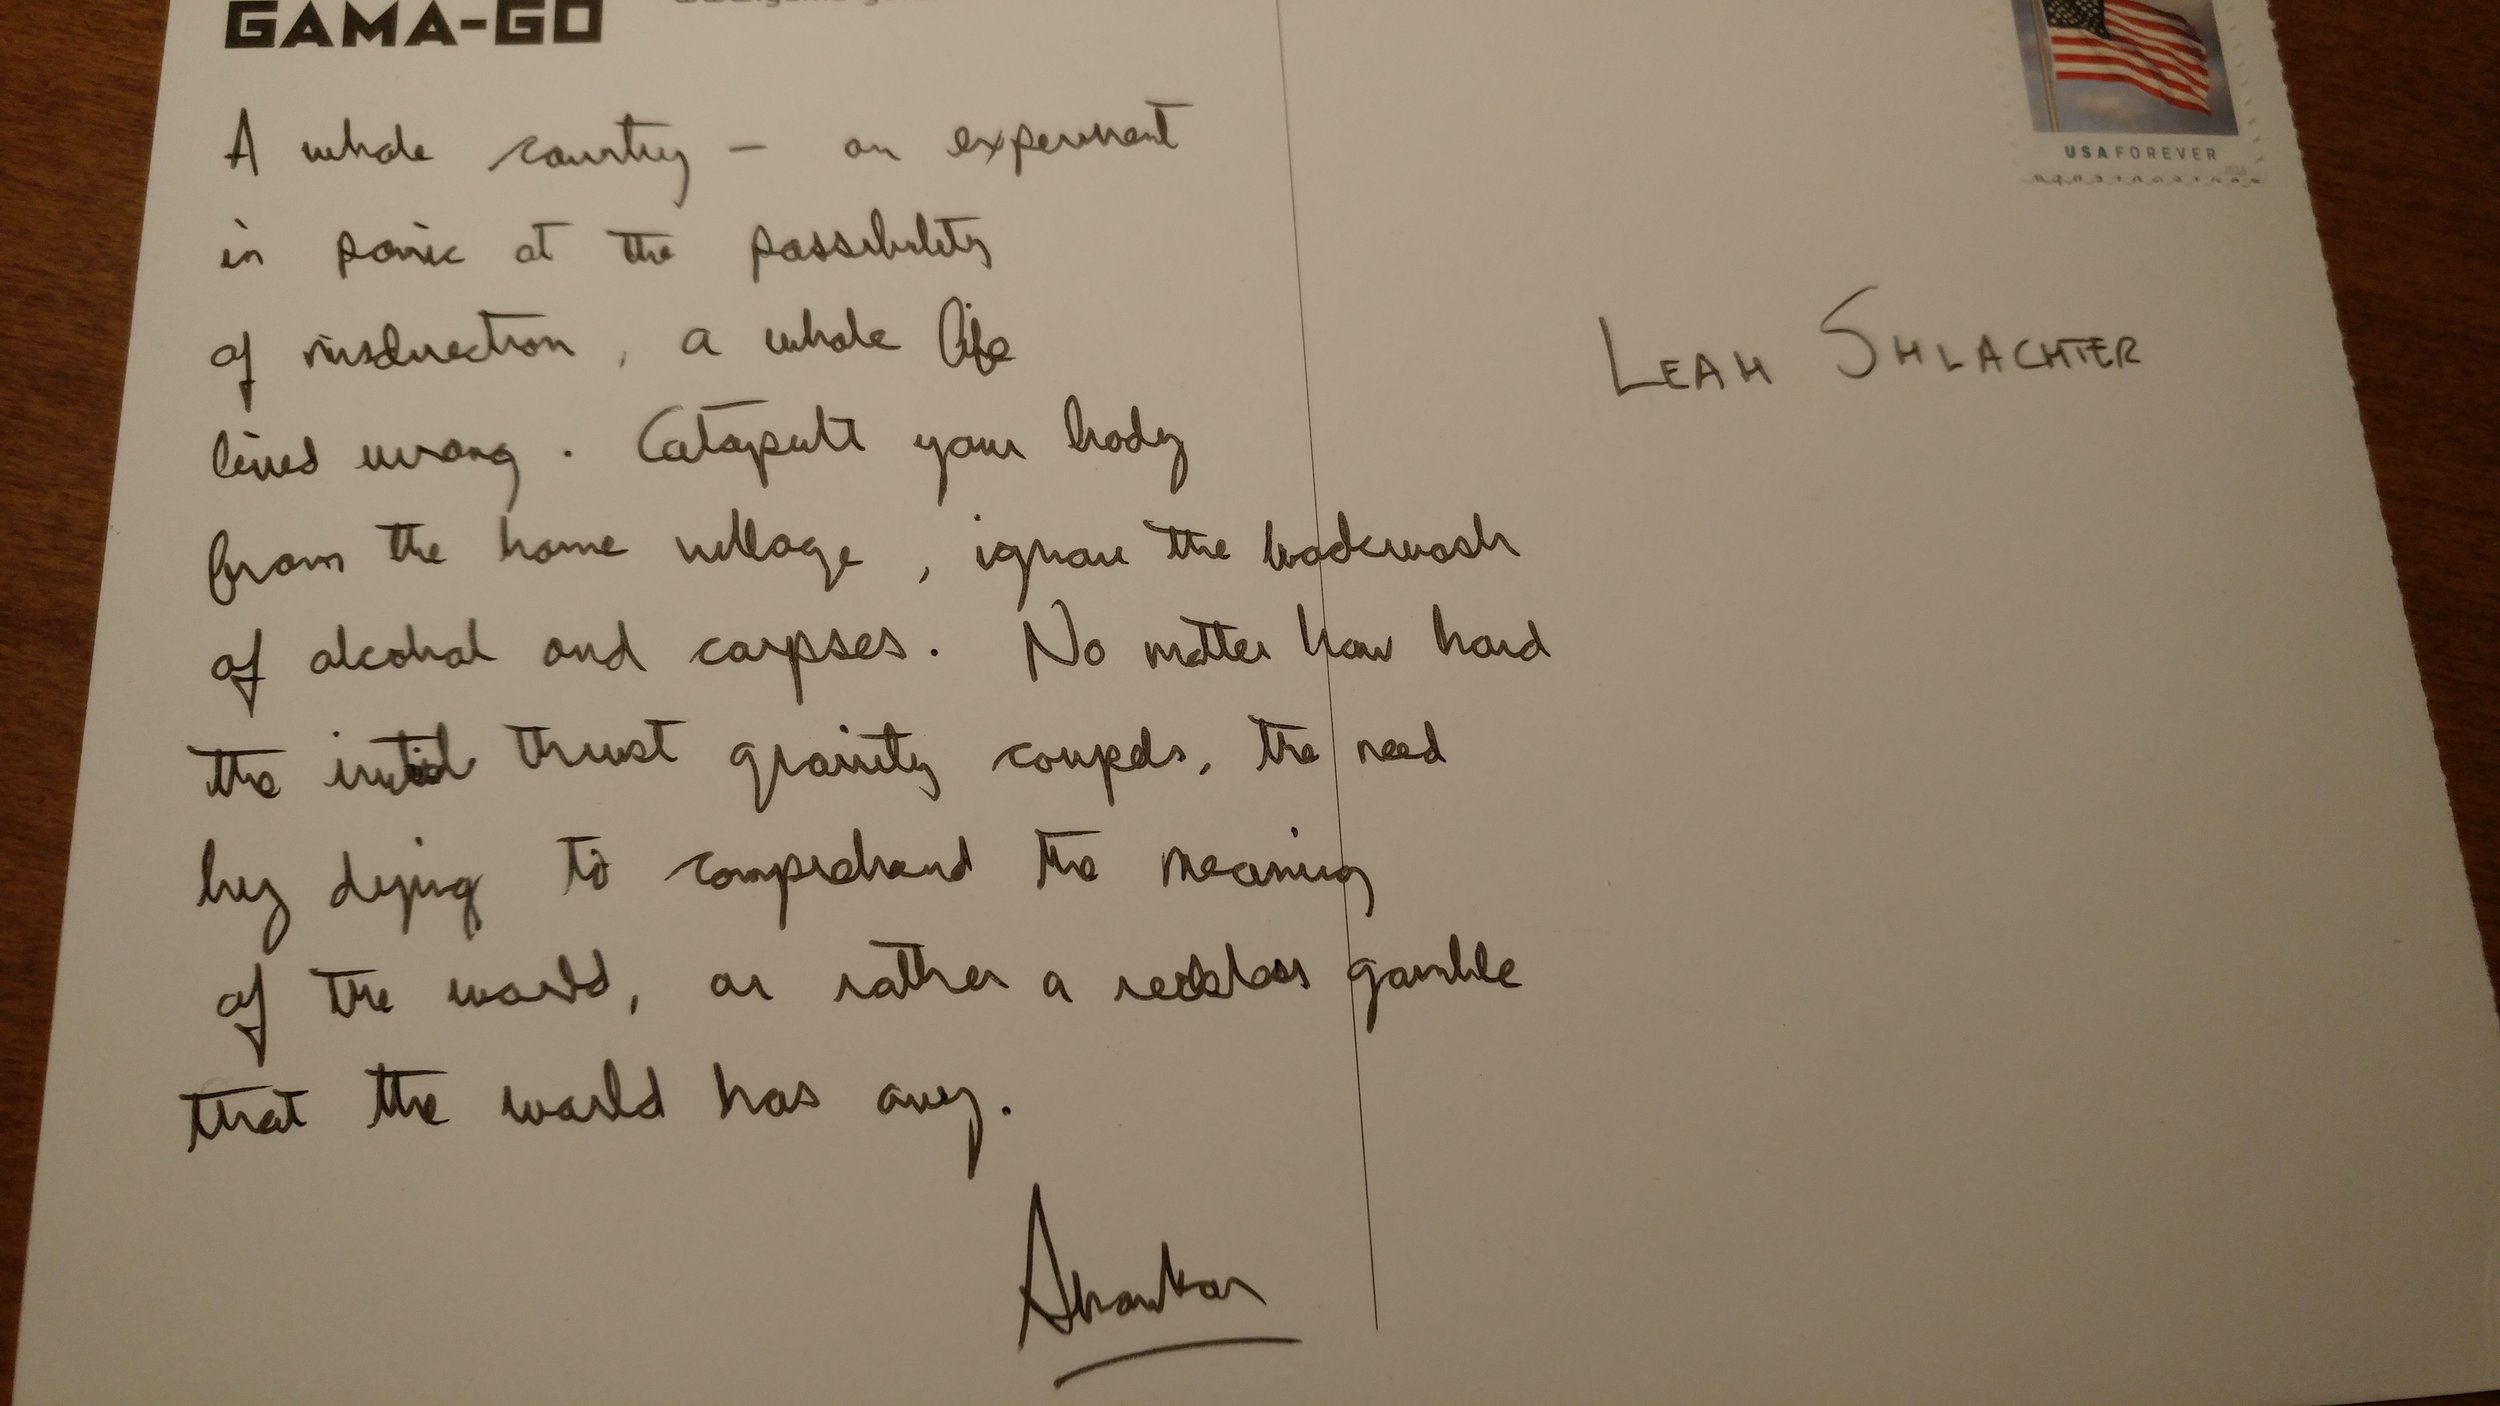 GAMA-GO
A whole country — an experiment
in panic at the possibility
of misdirection, a whole life
lived wrong. Catapult your body
from the home village, ignore the backwash
of alcohol and corpses. No matter how hard
the initial thrust gravity compels, the need
by dying to comprehend the meaning
of the world, or rather a reckless gamble
that the world has any.
USA FOREVER
LEAH SHLACHTER